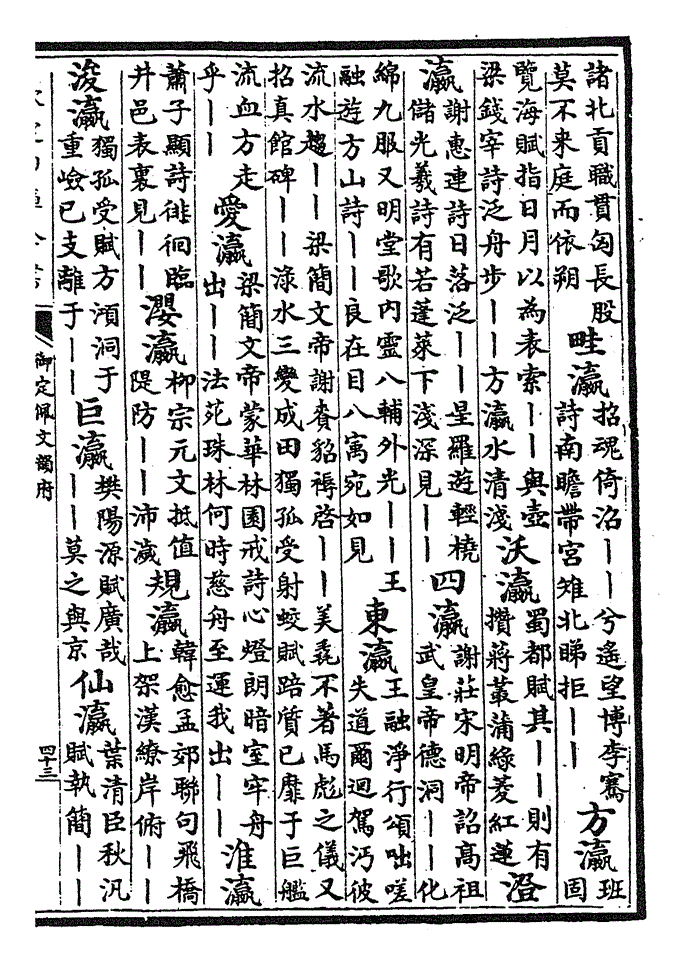 諸北貢職貫匈長股
莫不来庭而依朔
畦瀛
招魂倚沼——兮遙望博李騫
詩南瞻帶宮雉北睇拒——
方瀛
班
固
覽海賦指日月以為表索——與壺
梁錢宰詩泛舟步——方瀛水清淺
沃瀛
蜀都賦其——則有
攢蔣叢蒲緑菱紅蓮
澄
瀛
謝惠連詩日落泛——星羅遊輕橈
儲光羲詩有若蓬萊下淺深見——
四瀛
謝莊宋明帝詔高祖
武皇帝德洞——化
綿九服又明堂歌内靈八輔外光——王
融遊方山詩——良在目八寓宛如見
東瀛
王融淨行頌咄嗟
失道爾迴駕沔彼
流水趨——梁簡文帝謝賚貂褥啓——美毳不著馬彪之儀又
招真館碑——渌水三變成田獨孤受射蛟賦踣質已靡于巨艦
流血方走
乎——
愛瀛
梁簡文帝蒙華林園戒詩心燈朗暗室牢舟
出——法苑珠林何時慈舟至運我出——
淮瀛
蕭子顯詩徘徊臨
井邑表裏見——
瀴瀛
柳宗元文抵値
隄防——沛濊
規瀛
韓愈孟郊聯句飛橋
上架漢繚岸俯——
浚瀛
獨孤受賦方澒洞于
重嶮已支離于——
巨瀛
樊陽源賦廣哉
——莫之與京
仙瀛
葉清臣秋汎
賦執簡——
御定佩文韻府
四十三